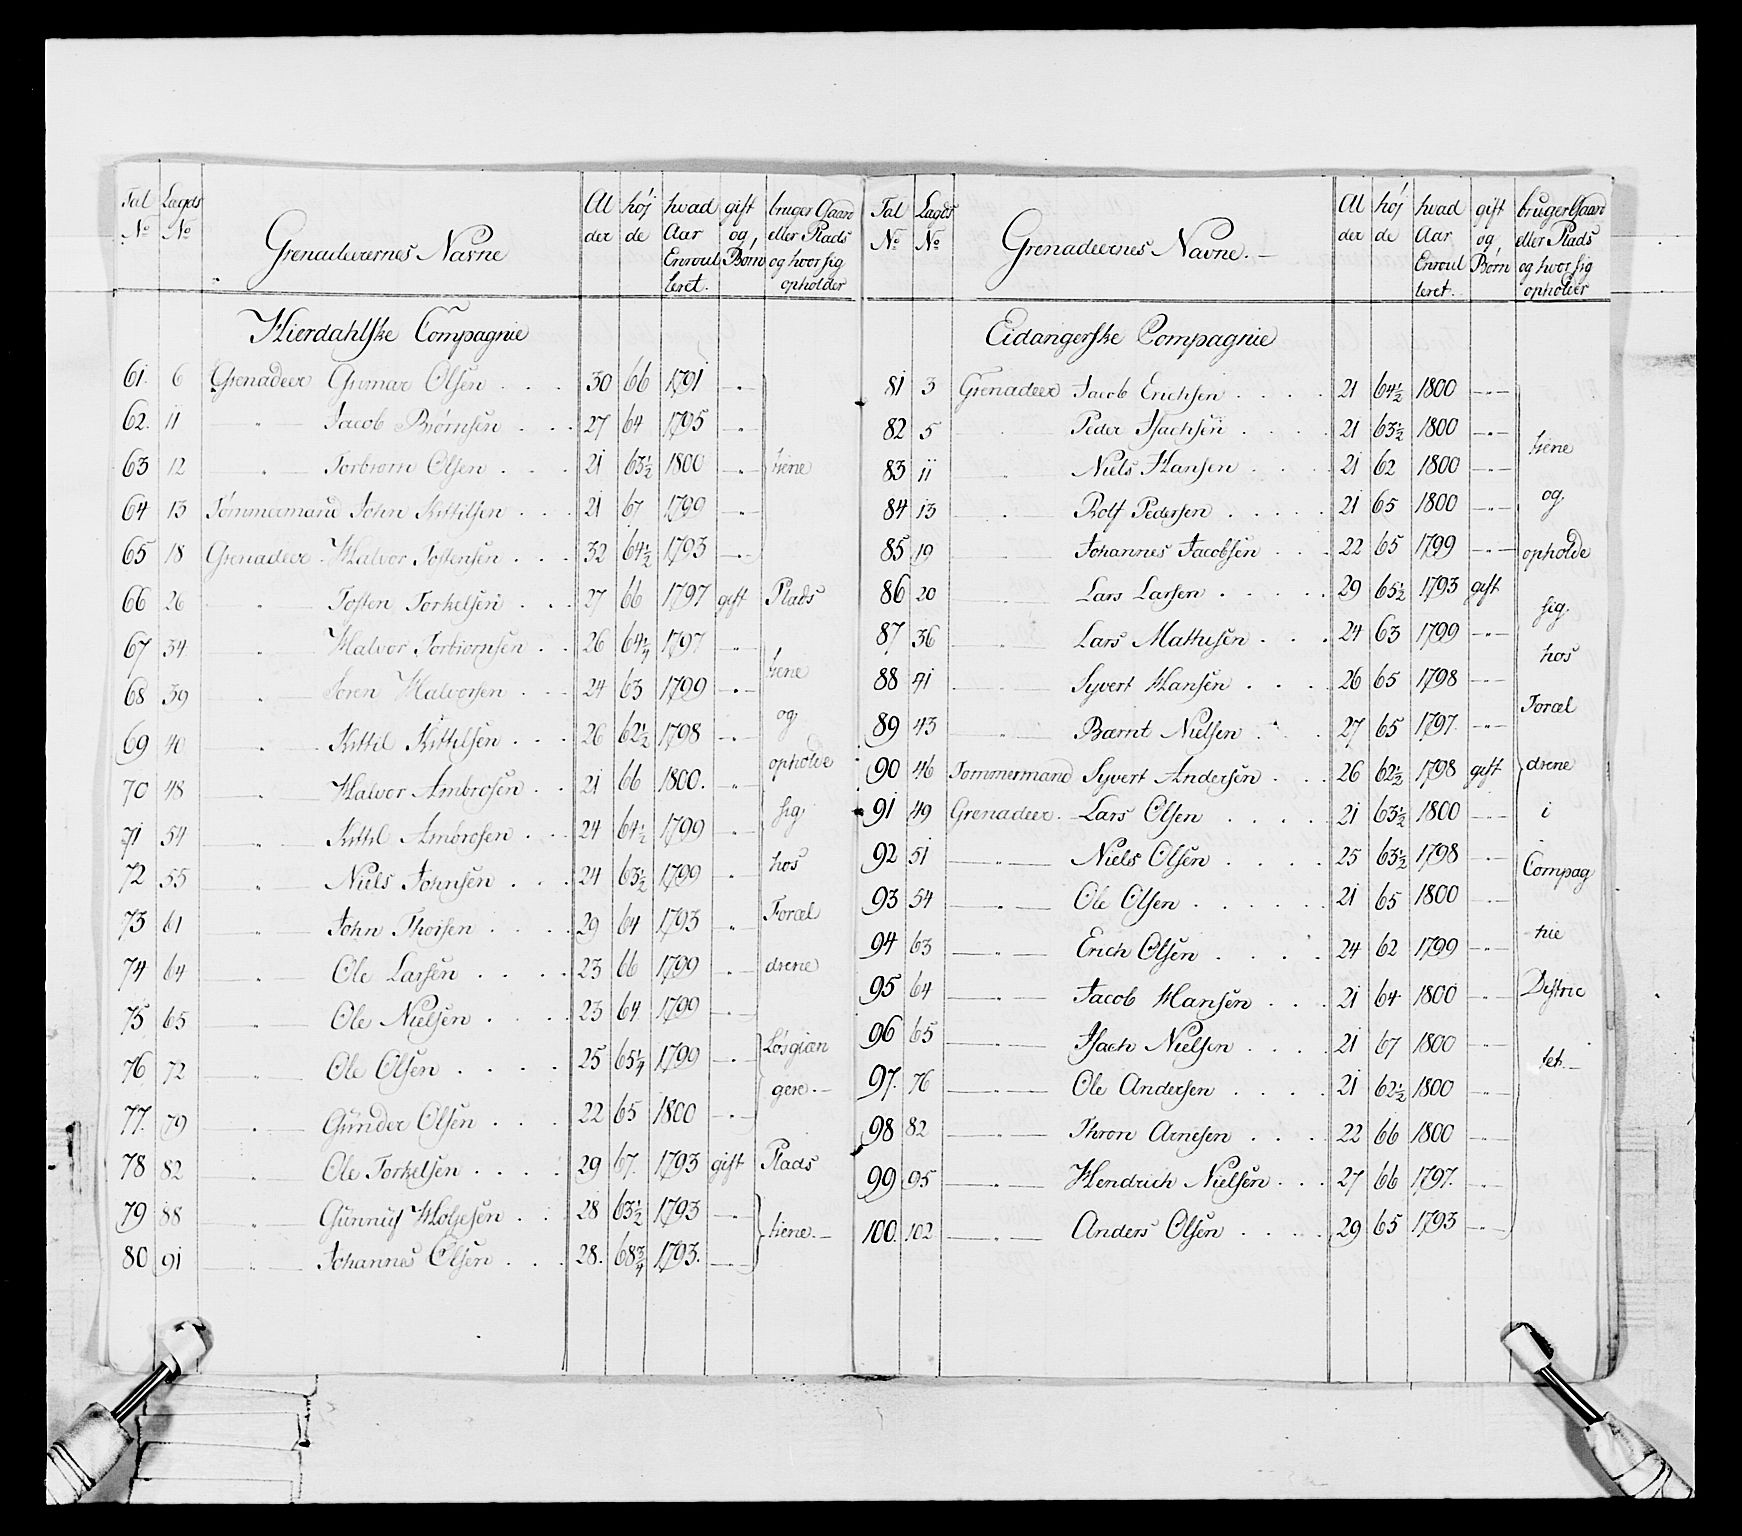 Tal No | Lægds No | Grenadeerernes Navne | Al der | høj de | hvad Aar Enroul leret. | gift og, Børn | bruger Gaard eller Plads og hvor sig opholder
Hierdahlske Compagnie
61. 6 Grenadeer Gunnar Olsen 30 66 1791 -"-
62. 11 -"- Jacob Biørnsen 27 64 1795 -"-
63 12 -"- Torbiørn Olsen 21 63½ 1800 -"- tiene
64 13 Tømmermand John Kittilsen 21 67 1799 -"-
65 18 Grenadeer Halvor Tostensen 32 64½ 1793 -"-
66 26 -"- Tosten Torkelsen 27 66 1797 gift Plads
67 34 -"- Halvor Torbiørnsen 26 64¼ 1797 -"-
68 39 -"- Søren Halvorsen 24 63 1799 -"- tiene
69 40 -"- Kittil Kittilsen 26 62½ 1798 -"- og
70 48 -"- Halvor Ambrosen 21 66 1800. -"- opholde
71 54 -"- Kittil Ambrosen 24 64½ 1799 -"- sig
72 55 -"- Niels Johnsen 24 63½ 1799 -"- hos
73 61 -"- John Thorsen 29 64 1793 -"- Foræl
74 64 -"- Ole Larsen 23 66 1799 -"- drene
75 65 -"- Ole Nielsen 23 64 1799 -"-
76 72 -"- Ole Olsen 25 65¼ 1799 -"- Løsgiæn
77. 79 -"- Gunder Olsen 22 65 1800 -"- gere.-
78 82 -"- Ole Torkelsen 29 67. 1793 gift Plads
79 88 -"- Gunnuf Holjesen 28 63½ 1793 -"- tiene.-
80 91 -"- Johannes Olsen 28. 68¾ 1793. -"-
Tal No | Lægds No | Grenadeernes Navne.- | Al der | høj de | hvad Aar Enroul leret. | gift og, Børn | bruger Gaard eller Plads og hvor sig opholder
Eidangerske Compagnie
81 3 Grenadeer Jacob Erichsen 21 64½ 1800 -"-
82 5 -"- Peder Isachsen 21 63½ 1800 -"- tiene
83 11 -"- Niels Hansen 21 62 1800 -"-
84 13 -"- Rolf Pedersen 21 65 1800 -"- og
85 19 -"- Johannes Jacobsen 22 65 1799 -"- opholde
86 20 -"- Lars Larsen 29 65½ 1793 gift sig
87 36 -"- Lars Mathisen 24 63 1799 -"- hos
88 41 -"- Syvert Hansen 26 65 1798 -"-
89 43 -"- Bærnt Nielsen 27 65 1797. -"- Foræl
90 46 Tømmermand Syvert Andersen 26 62½ 1798 gift drene
91 49 Grenadeer. Lars Olsen 21 63½ 1800 -"- i
92 51 -"- Niels Olsen 25 63½ 1798 -"- Compag
93 54 -"- Ole Olsen 21 65 1800 -"-
94 63 -"- Erich Olsen 24 62 1799 -"- nie
95 64 -"- Jacob Hansen 21 64 1800 -"- Distric
96 65 -"- Isach Nielsen 21 67 1800 -"- tet.-
97. 76 -"- Ole Andersen 21 62½ 1800 -"-
98 82 -"- Thron Arnesen 22 66 1800 -"-
99 95 -"- Hendrich Nielsen 27 66 1797. -"-
100. 102 -"- Anders Olsen 29 65 1793 -"-